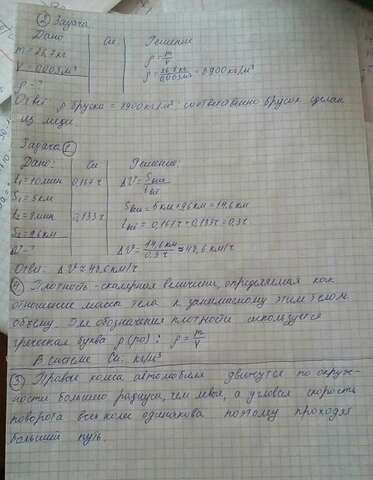 ② Задача.
Дано Си Решение
m = 26,7кг ρ = m/V
V = 0,003м³ ρ = 26,7 кг/0,003м³ = 8900кг/м³
ρ - ?
Ответ ρ бруска = 8900кг/м³ соответственно брусок сделан
из меди
Задача ①
Дано: Си Решение:
t₁ = 10мин 0,167ч ΔV = Sвсе/tвсе
S₁ = 5км Sвсе = 5км + 9,6км = 14,6км
t₂ = 8мин 0,133ч tвсе = 0,167ч + 0,133ч = 0,3ч
S₂ = 9,6км
V - ? ΔV = 14,6км/0,3ч ≈ 48,6км/ч
Ответ: ΔV ≈ 48,6 км/ч
④ Плотность - скалярная величина, определяемая как
отношение массы тела к занимаемому этим телом
объему. Для обозначения плотности используется
греческая буква ρ (ро): ρ = m/V
В системе Си. кг/м³
③ Правые колеса автомобиля движутся по окруж-
ности большего радиуса, чем левое, а угловая скорость
поворота всех колес одинакова поэтому проходят
больший путь.